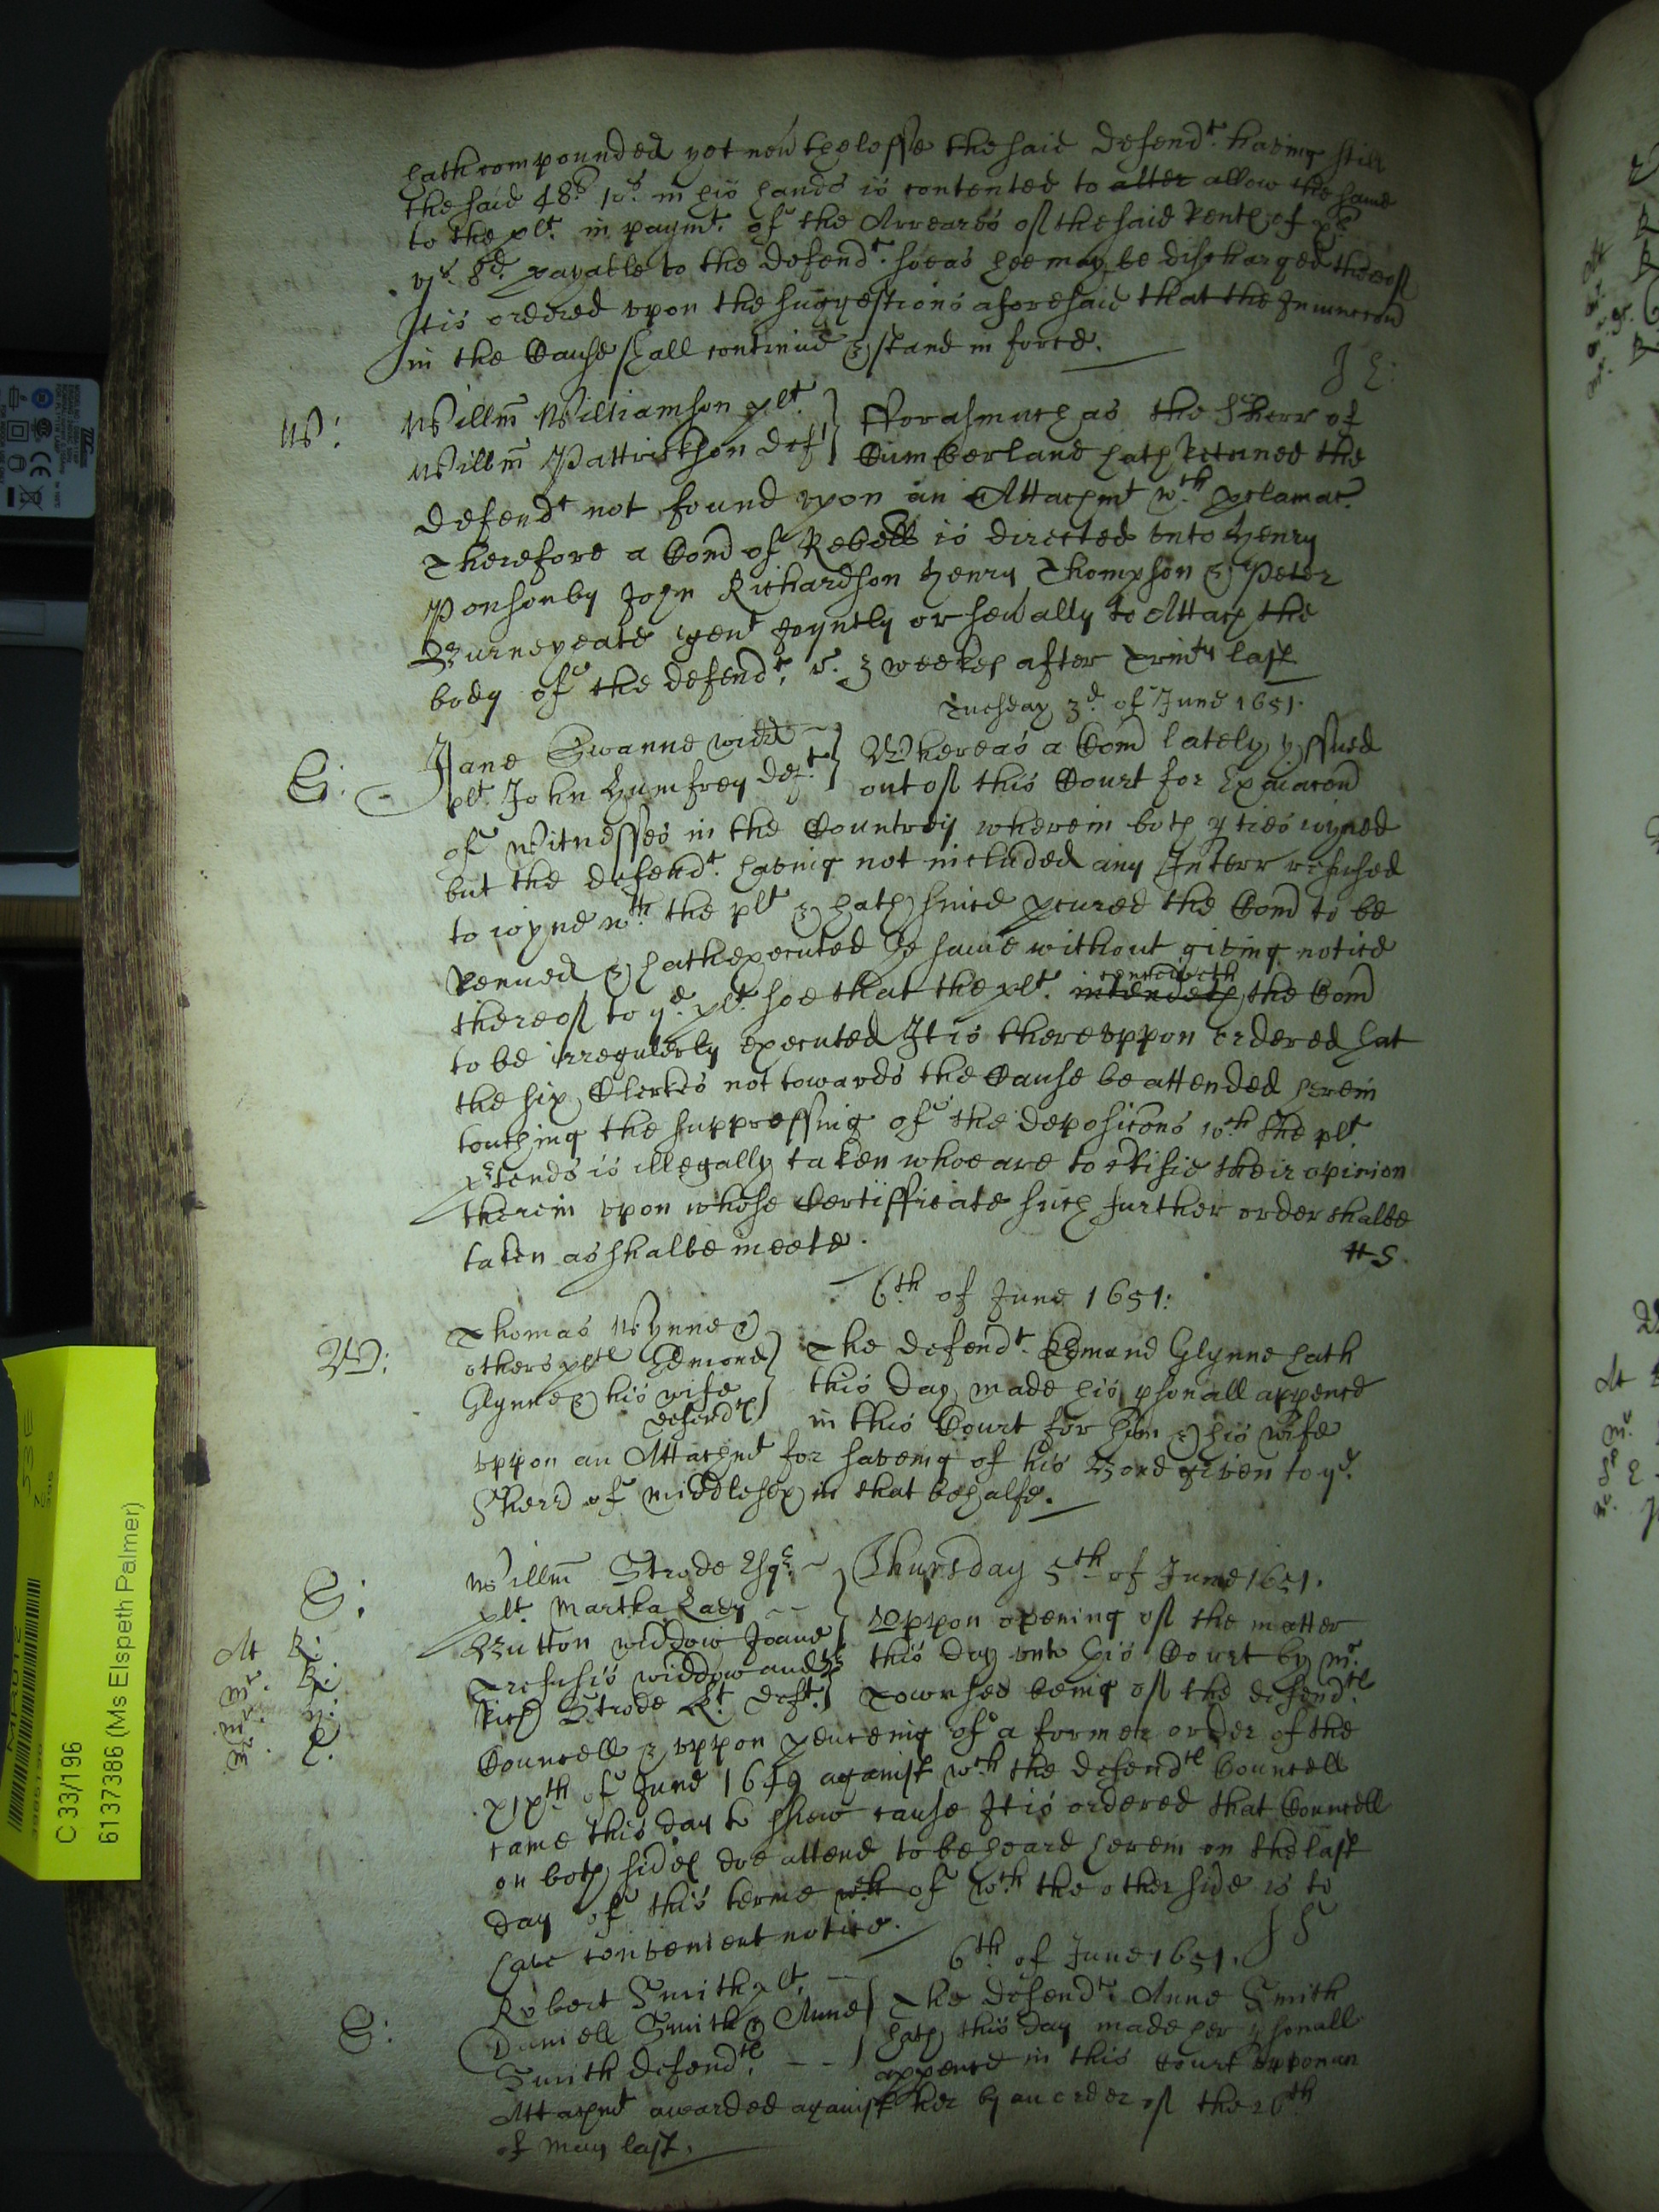 hath compounded yet nevtheless the said Defendt. having still
the said 48li 10s in his hands is contented to alter allow the same
to the plt. in paymt. of the Arreares of the said Rent of
vjs. 8d. payable to the Defendt. soe as hee may be discharged thereof
It is ordered vpon the suggestions aforesaid that the Iniuncon
in the Cause shall continue & stand in force.
W:
Willm Williamson plt.
Willm Pattrickson deft
Forasmuch as the Sherr of
Cumberland hath Retorned the
defendt not found vpon an Attachmt wth pclamac
Therefore a Comd of Rebell is directed vnto Henry
Ponsonby John Richardson Henry Thompson & Peter
Burneyeate gent joyntly or seually to Attach the
body of the defendt. r. 3 weekes after Trinty last
Tuesday 3d. of June 1651.
S:
Jane Swanne widd
plt. John Humfrey deft.
Whereas a Comd lately yssued
out of this Court for Exaiacon
of Witnesses in the Countrey wherein both pties ioyned
but the defendt. having not included any Interr refused
to ioyne wth the plt & hath since pcured the Comd to be
Renued & hath executed the same without giving notice
thereof to ye. plt. soe that the plt. intendeth conceiveth the Comd
to be irregulerly executed It is therevppon ordered that
the six Clerkes not towards the Cause be attended herein
touching the suppressing of the deposicons wch the plt.
ptends is illegally taken whoe are to Certifie their opinion
therein vpon whose Certifficate such further order shalbe
taken as shalbe meete.
HS.
6th of June 1651:
W:
Thomas Wynne &
others plts Edmond
Glynne & his wife
defendts
The defendt. Edmund Glynne hath
this day made his psonall appence
in this Court for him & his wife
vppon an Attachmt for saveing of his Bond given to ye.
Sherr of Middlesex in that behalfe.
S:
Willm Strode Esqr.
plt. Martha Lady
Button widdow Joane
Trefusis widdow and Sr
Rich Strode Kt. defts.
Thursday 5th of June 1651.
Vppon opening of the matter
this day vnto this Court by Mr.
Towrsed being of the defendts
Councell & vppon pruseing of a former order of the
xixth. of June 1649 against wch the defendts Councell
came this day to shew cause It is ordered that Councell
on both sides doe attend to be heard herein on the last
day of this terme wch of wch the other side is to
have convenient notice.
6th of June 1651.
S:
Robert Smith plt.
Daniell Smith & Anne
Smith defendts.
The defendt. Anne Smith
hath this day made her psonall
appence in this Court vppon an
Attachmt awarded against her by an order of the 26th
of May last.
C 33/196
6137386 (Ms Elspeth Palmer)